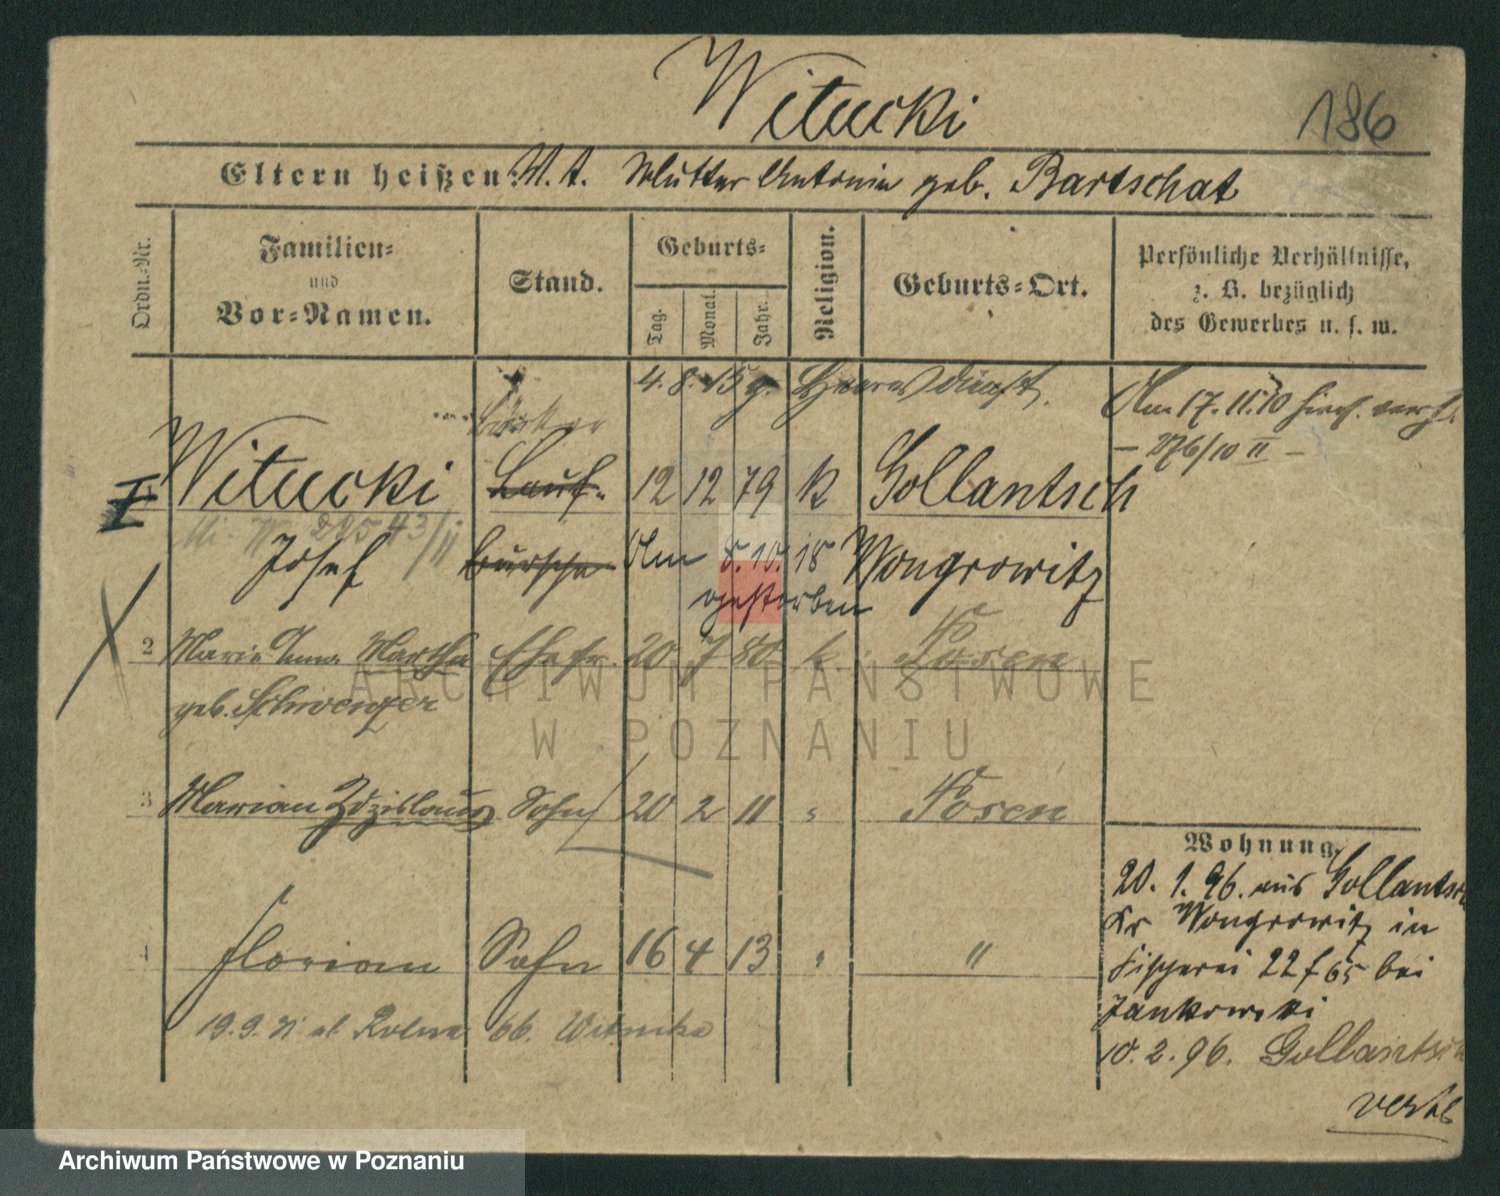 Witucki
186
Eltern heißen: V. t. Mutter Antonie geb. Bartschat
Ordn.-Nr.
Familien-
und
Vor-Namen.
Stand.
Geburts-
Tag.
Monat.
Jahr.
Religion.
Geburts-Ort.
Persönliche Verhältnisse,
z. B. bezüglich
des Gewerbes u. s. w.
4. 8. 15 z. Heeresdienst.
Am 17. 11. 10 hier verh.
– 1176/10 II –
I Witucki Lauf- 12 12 79 K Gollantsch
Josef bursche Am 8. 10. 18 Wongrowitz
gestorben
2 Marie Anna Martha Ehefr. 20 7 80 k. Posen
geb. Schwenzer
3 Marian Zdzislaus Sohn 20 2 11 " Posen
4 Florian Sohn 16 4 13 " "
19. 9. 21
Wohnung.
20. 1. 96. aus Gollantsch
Kr Wongrowitz in
Fischerei 22 f 65 bei
Jankowski
10. 2. 96. Gollantsch
ARCHIWUM PAŃSTWOWE
W POZNANIU
Archiwum Państwowe w Poznaniu